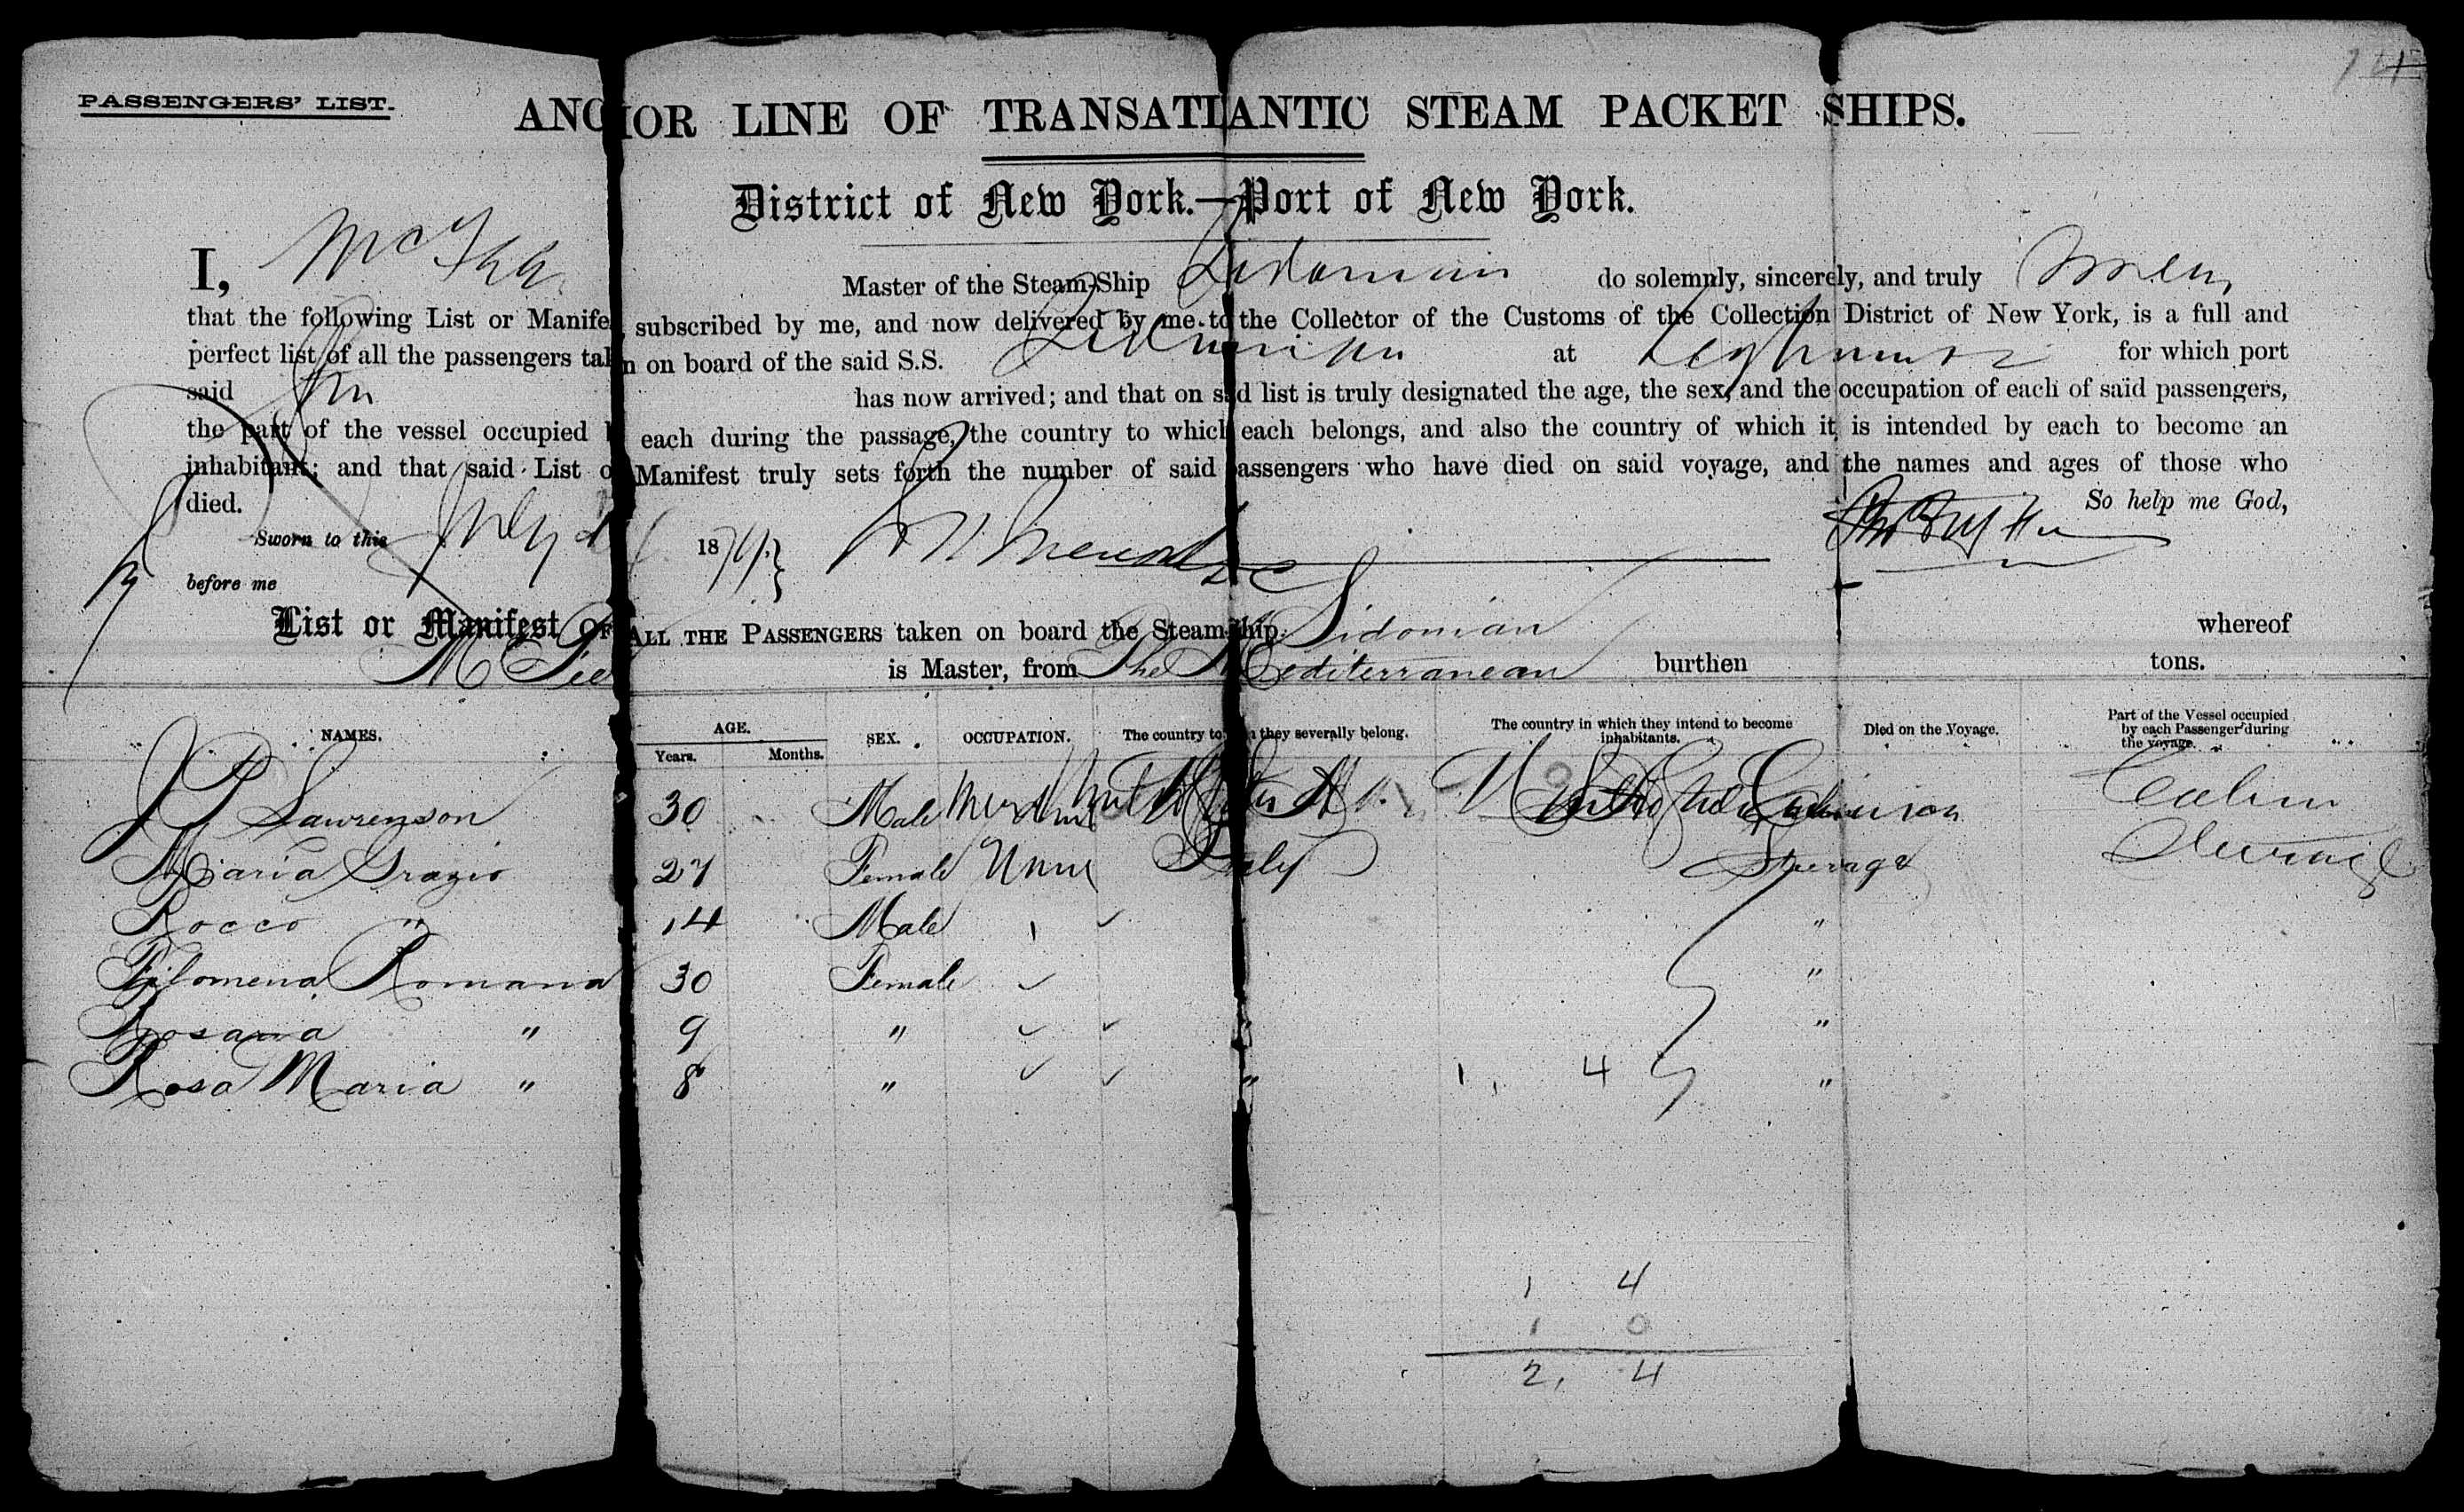 PASSENGERS' LIST.
ANCHOR LINE OF TRANSATLANTIC STEAM PACKET SHIPS.
District of New York.—Port of New York.
I, Master of the Steam-Ship Sidonian do solemnly, sincerely, and truly swear
that the following List or Manife subscribed by me, and now delivered by me to the Collector of the Customs of the Collection District of New York, is a full and
perfect list of all the passengers tak n on board of the said S.S. Sidonian at for which port
said has now arrived; and that on s d list is truly designated the age, the sex, and the occupation of each of said passengers,
the part of the vessel occupied each during the passage, the country to which each belongs, and also the country of which it is intended by each to become an
inhabitant; and that said List o Manifest truly sets forth the number of said passengers who have died on said voyage, and the names and ages of those who
died. So help me God,
Sworn to this July 1879
before me
List or Manifest OF ALL THE PASSENGERS taken on board the Steam-Ship Sidonian whereof
is Master, from The Mediterranean burthen tons.
NAMES. AGE. SEX. OCCUPATION. The country to they severally belong. The country in which they intend to become inhabitants. Died on the Voyage. Part of the Vessel occupied by each Passenger during the voyage.
Years. Months.
J P Lawrenson 30 Male Merchant Cabin
Maria Grazio 27 Female None Italy Steerage Steerage
Rocco " 14 Male "
Filomena Romana 30 Female "
Rosana " 9 " " "
Rosa Maria " 8 " " 1, 4 "
1 4
1 0
2, 4